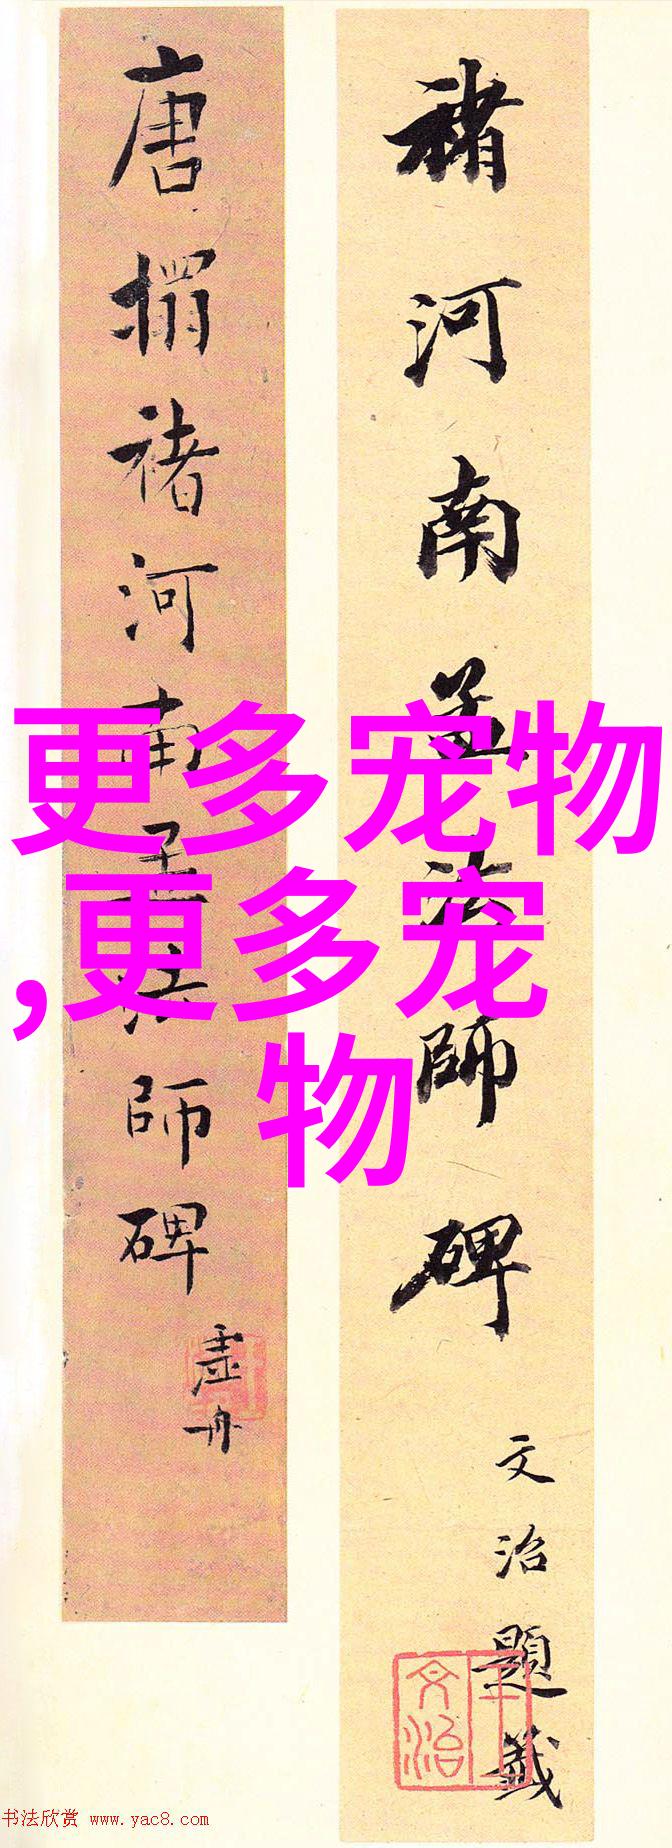 褚河南孟法師碑
文治題籤
王文治
唐搨褚河南孟法師碑
虛舟
更多宠物
,更多宠
物
书法欣赏 www.yac8.com